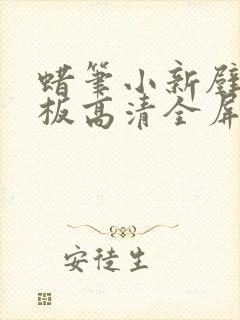 蜡筆小新壁
板高清全屏
安徒生